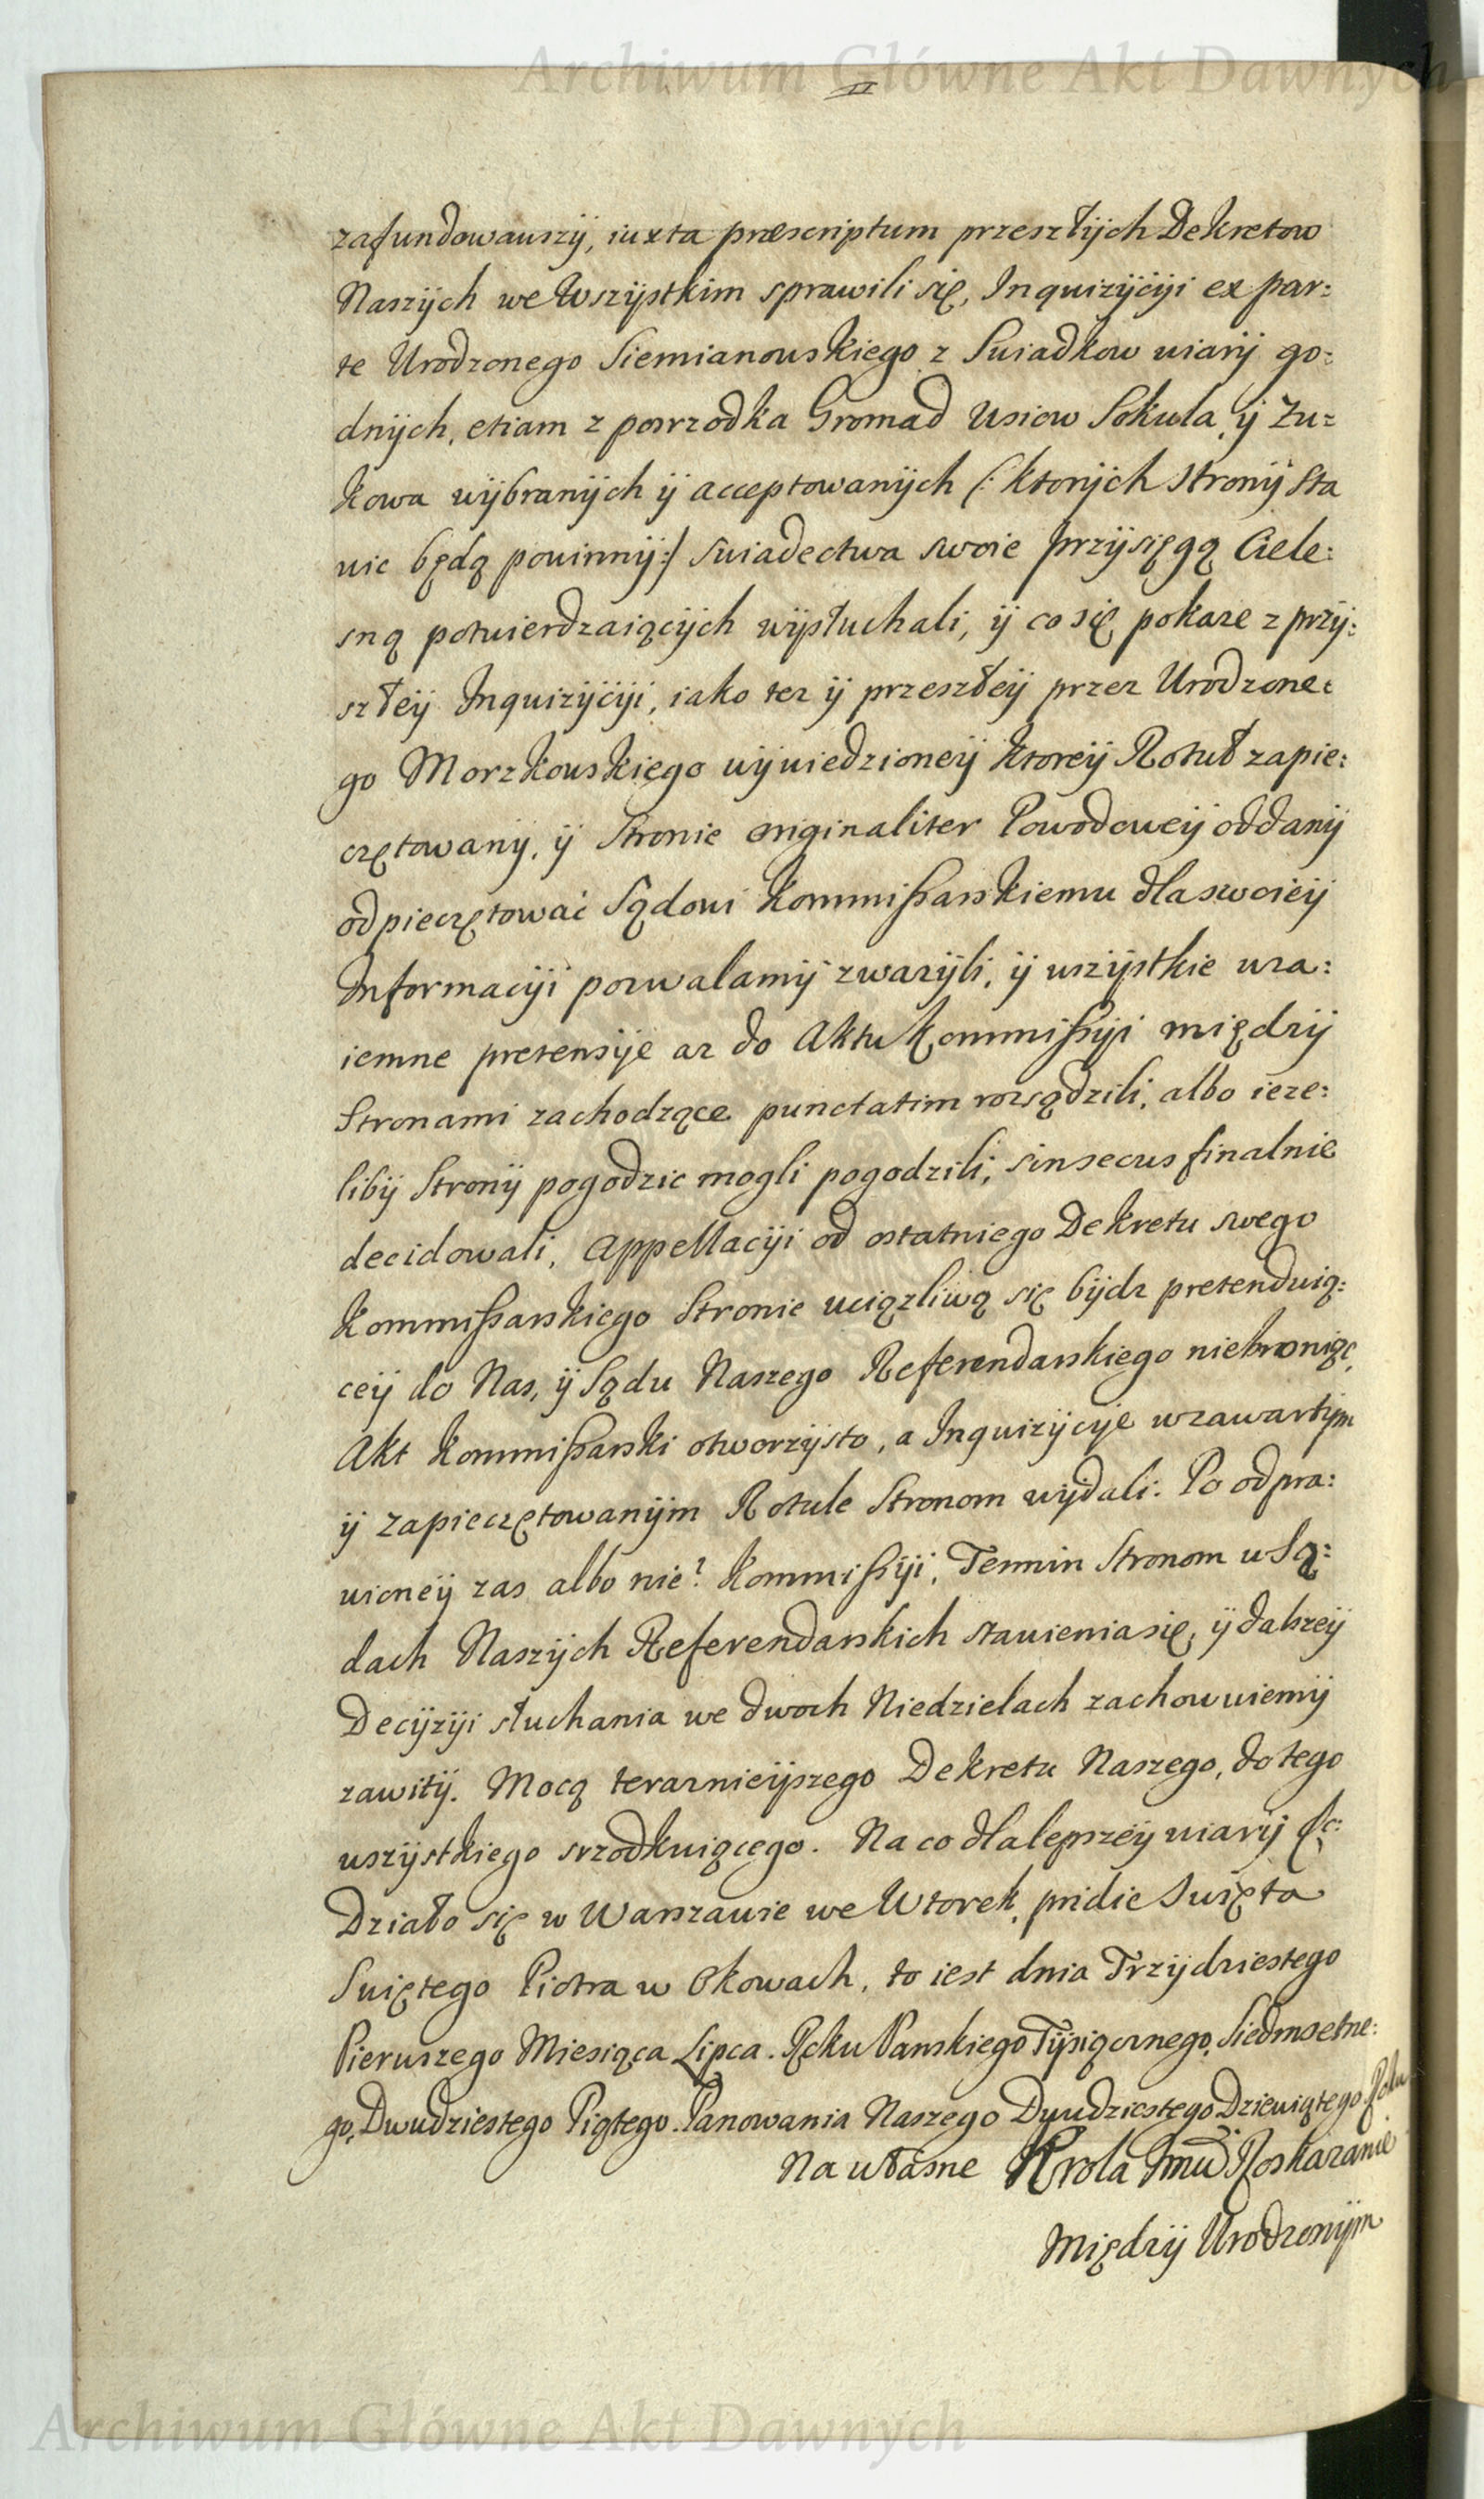 Archiwum Główne Akt Dawnych
II
zafundowawszÿ, iuxta præscriptum przeszłÿch Dekretow
Naszÿch we Wszÿstkim sprawili się, Inquizÿcÿi ex par:
te Urodzonego Siemianowskiego z Swiadkow wiarÿ go:
dnÿch, etiam z posrzodka Gromad Wsiow Sokula, ÿ Zu:
kowa wÿbranÿch ÿ acceptowanÿch (: ktorÿch stronÿ sta
wic będą powinnÿ:) swiadectwa swoie przÿsięgą Ciele:
sną potwierdzaiącÿch wÿsłuchali, ÿ co się pokaze z przÿ:
szłeÿ Inquizÿcÿi, iako tez ÿ przeszłeÿ przez Urodzone:
go Morzkowskiego wÿwiedzioneÿ ktoreÿ Rotuł zapie:
czętowanÿ, ÿ Stronie originaliter Powodoweÿ oddanÿ
odpieczętować Sądowi Kommissarskiemu dla swoieÿ
Informacÿi pozwalamÿ zwazÿli, ÿ wszÿstkie wza:
iemne pretensÿe az do Aktu Kommissÿi międzÿ
Stronami zachodzące punctatim rozsądzili, albo ieze:
libÿ Stronÿ pogodzic mogli pogodzili, sinsecus finalnie
decidowali, Appellacÿi od ostatniego Dekretu swego
Kommissarskiego Stronie uciązliwą się bÿdz pretenduią:
ceÿ do Nas, ÿ Sądu Naszego Referendarskiego niebroniąc,
Akt Kommissarski otworzÿsto, a Inquizÿcÿe w zawartÿm
ÿ zapieczętowanÿm Rotule Stronom wÿdali. Po odpra:
wioneÿ zas albo nie? Kommissÿi, Termin Stronom w Są:
dach Naszÿch Referendarskich stawienia się, ÿ dalszeÿ
Decÿzÿi słuchania we dwoch Niedzielach zachowuiemÿ
zawitÿ. Mocą terazniejszego Dekretu Naszego, do tego
wszÿstkiego srzodkuiącego. Na co dla lepszeÿ wiarÿ &c:
Działo się w Warszawie we Wtorek, pridie Swięta
Swiętego Piotra w Okowach, to iest dnia Trzÿdziestego
Pierwszego Miesiąca Lipca. Roku Panskiego Tÿsiącznego, Siedmsetne:
go, Dwudziestego Piątego. Panowania Naszego Dwudziestego Dziewiątego Roku
Na własne Krola Jmci Roskazanie
Międzÿ Urodzonÿm
Archiwum Główne Akt Dawnych